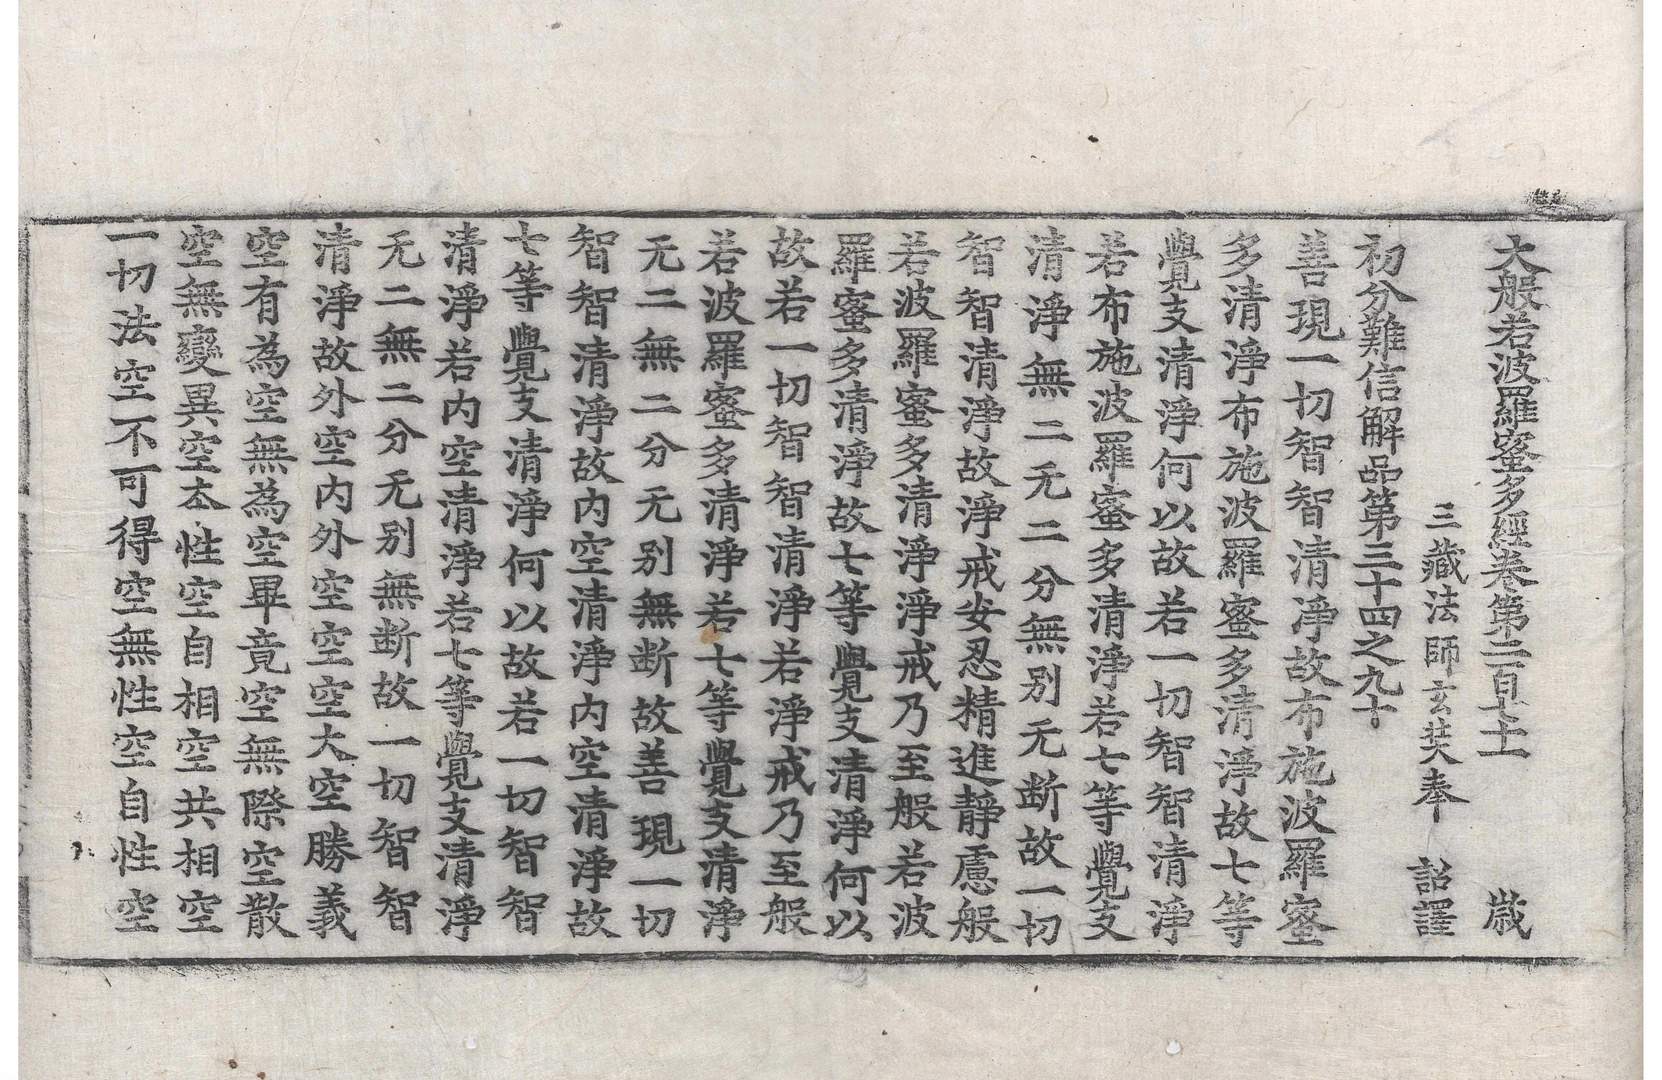 大般若波羅蜜多經卷第二百七十一　歲
三藏法師玄奘奉　詔譯
初分難信解品第三十四之九十
善現一切智智清淨故布施波羅蜜
多清淨布施波羅蜜多清淨故七等
覺支清淨何以故若一切智智清淨
若布施波羅蜜多清淨若七等覺支
清淨無二无二分無别无断故一切
智智清淨故淨戒安忍精進靜慮般
若波羅蜜多清淨淨戒乃至般若波
羅蜜多清淨故七等覺支清淨何以
故若一切智智清淨若淨戒乃至般
若波羅蜜多清淨若七等覺支清淨
无二無二分无别無断故善現一切
智智清淨故内空清淨内空清淨故
七等覺支清淨何以故若一切智智
清淨若内空清淨若七等覺支清淨
无二無二分无别無断故一切智智
清淨故外空内外空空空大空勝義
空有為空無為空畢竟空無際空散
空無變異空本性空自相空共相空
一切法空不可得空無性空自性空